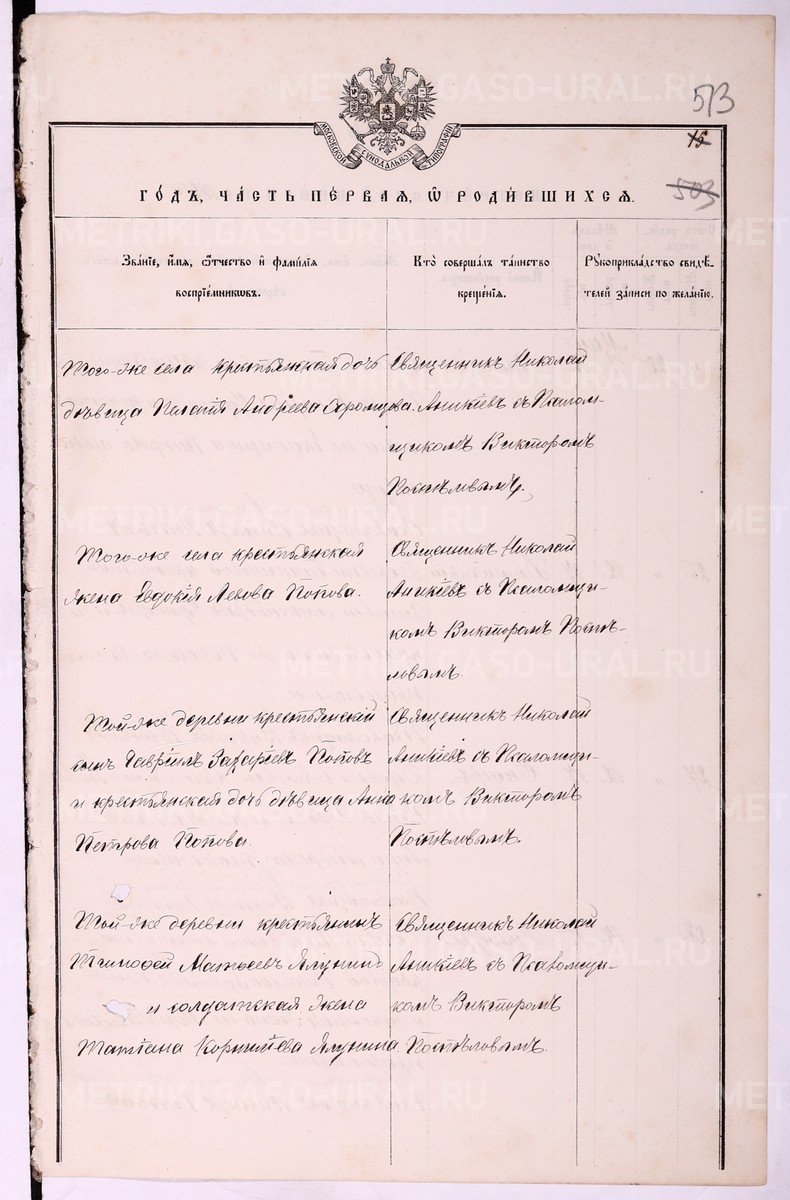 513
15
503
МОСКОВСКОЙ СѴНОДАЛЬНОЙ ТИПОГРАФІИ
ГО́ДЪ, ЧА́СТЬ ПЕ́РВАЯ, Ѡ҆ РОДИ́ВШИХСЯ.
Зва́ніе, и҆́мя, ѻ҆́тчество и҆ фами́лія
воспріе́мниковъ.
Кто̀ соверша́лъ та́инство
креще́нія.
Рꙋкоприкла́дство свидѣ́-
телей за́писи по жела́нію.
Того-же села крестьянская дочь
дѣвица Пелагія Андреева
Священникъ Николай
Аникіевъ съ Псалом-
щикомъ Викторомъ
Поспѣловымъ.
Того-же села крестьянская
жена Евдокія Левова Попова.
Священникъ Николай
Аникіевъ съ Псаломщи-
комъ Викторомъ Поспѣ-
ловымъ.
Той-же деревни крестьянскій
сынъ Гавріилъ Захаріевъ Поповъ
и крестьянская дочь дѣвица Анна
Петрова Попова.
Священникъ Николай
Аникіевъ съ Псаломщи-
комъ Викторомъ
Поспѣловымъ.
Той-же деревни крестьянинъ
Тимофей Матѳеевъ Ялунинъ
и солдатская жена
Татіана Корниліева Ялунина.
Священникъ Николай
Аникіевъ съ Псаломщи-
комъ Викторомъ
Поспѣловымъ.
METRIKI.GASO-URAL.RU